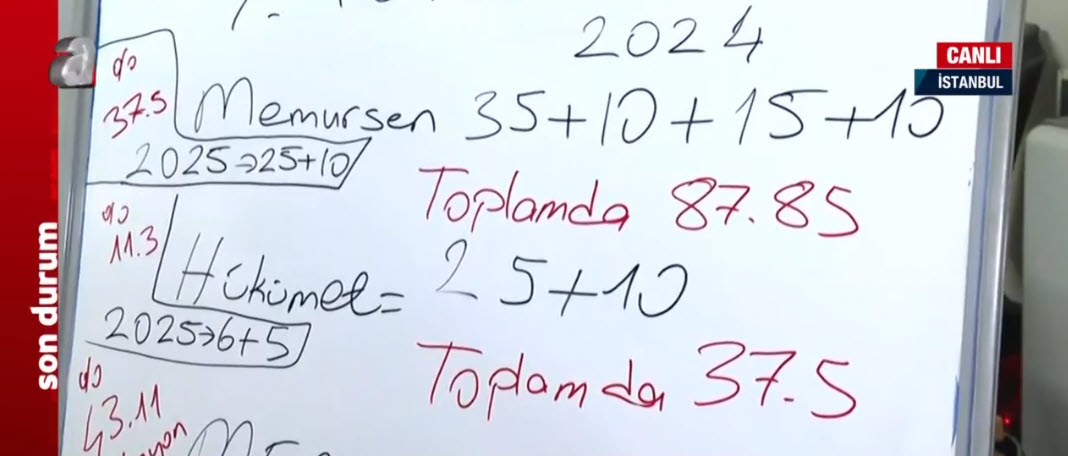 2024
CANLI
İSTANBUL
a
%
37.5
Memursen 35+10+15+10
2025→25+10
Toplamda 87.85
%
11.3
Hükümet = 25+10
2025→6+5
Toplamda 37.5
%
43.11
son durum